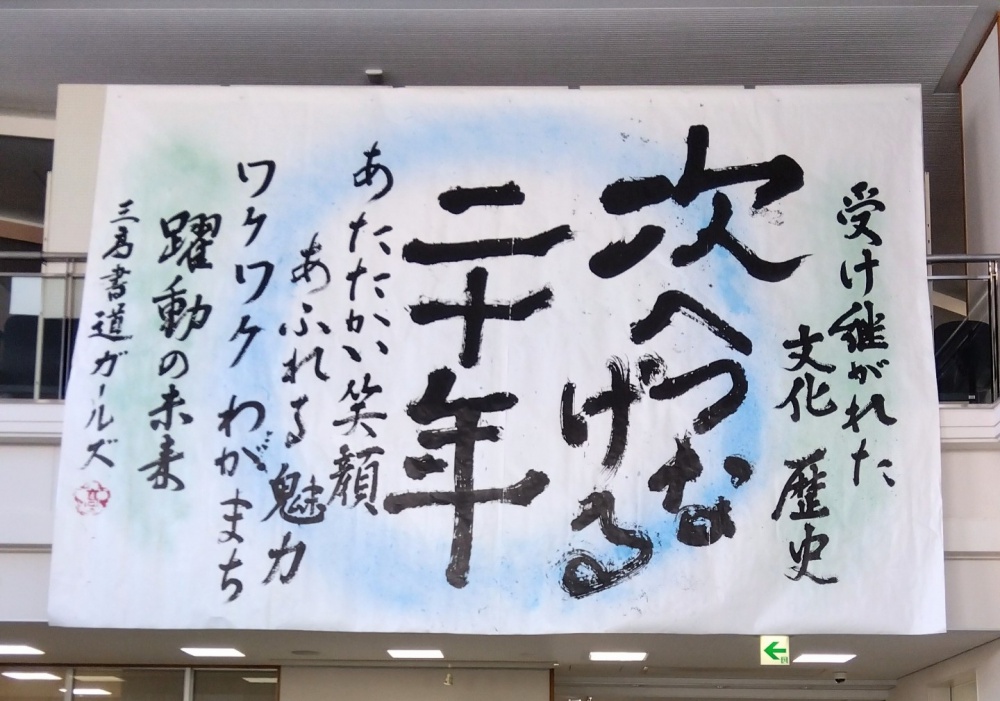 受け継がれた
文化 歴史
次へつな
げる
二十年
あたたかい笑顔
あふれる魅力
ワクワク わがまち
躍動の未来
三高書道ガールズ